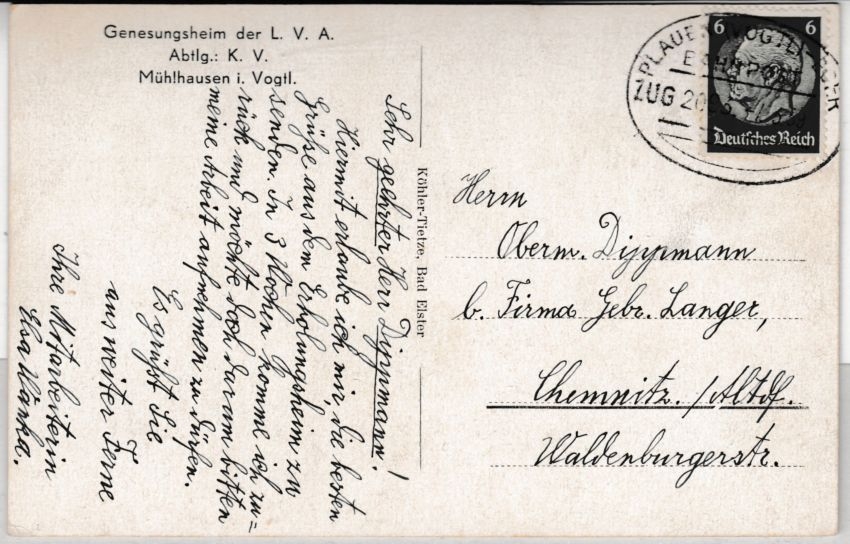 Genesungsheim der L. V. A.
Abtlg.: K. V.
Mühlhausen i. Vogtl.
Sehr geehrter Herr Dippmann!
Hiermit erlaube ich mir, die besten
Grüße aus dem Erholungsheim zu
senden. In 3 Wochen komme ich zu=
rück und möchte doch darum bitten
meine Arbeit aufnehmen zu dürfen.
Es grüßt Sie
aus weiter Ferne
Ihre Mitarbeiterin
Elsa
Köhler-Tietze, Bad Elster
PLAUEN (VOGTL)-EGER
BAHNPOST
ZUG
6 6
Deutsches Reich
Herrn
Oberm. Dippmann
b. Firma Gebr. Langer,
Chemnitz. /Altdf.
Waldenburgerstr.